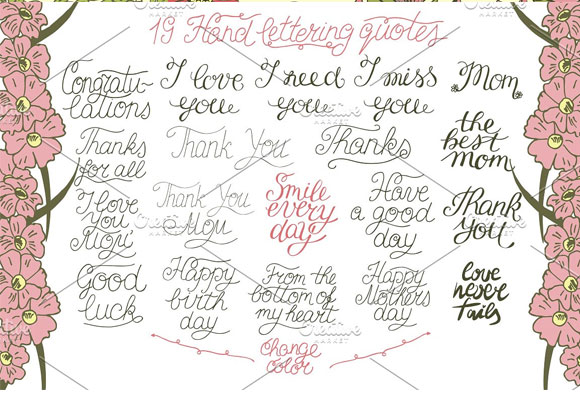 19 Hand lettering quotes
Congratu-
lations
I love
you
I need
you
I miss
you
Mom
Thanks
for all
Thank You
Thanks
the
best
mom
I love
you,
Mom
Thank You
Mom
Smile
every
day
Have
a good
day
Thank
you
Good
luck
Happy
birth
day
From the
bottom of
my heart
Happy
Mothers
day
love
never
fails
change
color
Creative
MARKET